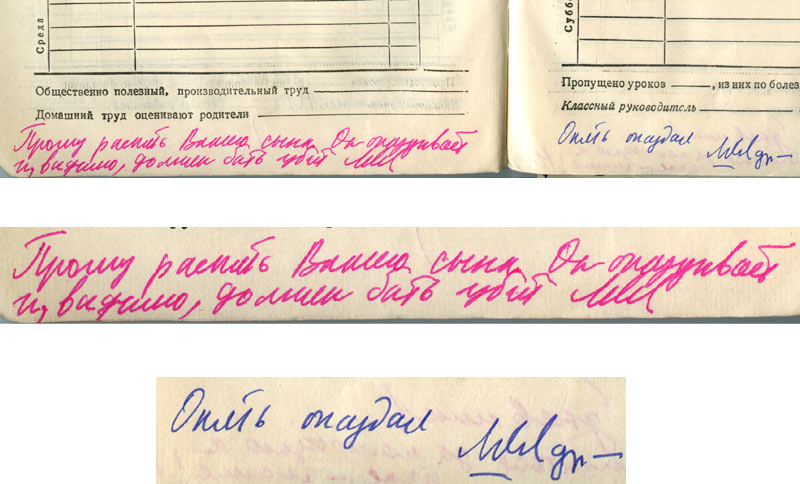 Среда
Общественно полезный, производительный труд
Домашний труд оценивают родители
Прошу распять Вашего сына Он опаздывает
и, видимо, должен быть убит
Субб
Пропущено уроков , из них по болез
Классный руководитель
Опять опоздал
Прошу распять Вашего сына Он опаздывает
и, видимо, должен быть убит
Опять опоздал